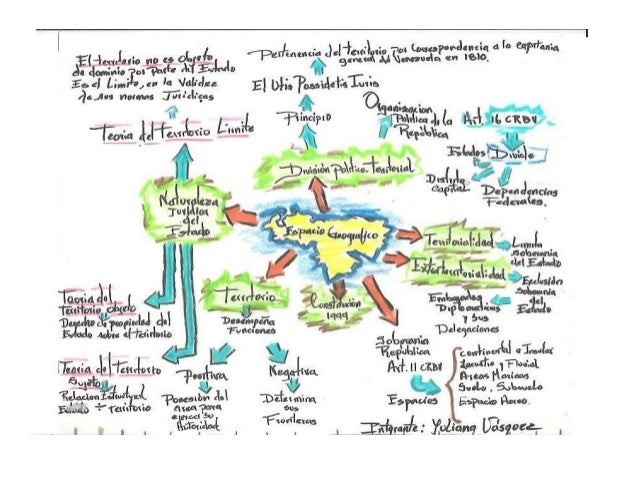 El territorio no es Objeto
de dominio por parte del Estado
Es el Limite, en la Validez
de sus normas Jurídicas
Teoria del Territorio Limite
Pertenencia del territorio por Correspondencia a la capitania
general de Venezuela en 1810.
El Utis Possidetis Iuris
Principio
Organizacion
Politica de la
República
Art. 16 CRBV
Estados
Divide
Distrito
Capital
Dependencias
Federales.
División Politico. Territorial
Naturaleza
Juridica
del
Estado
Espacio Geografico
Territorialidad
Limita
Soberania
del Estado
Extraterritorialidad
Exclusión
Soberania
del,
Estado
Embajadas
Diplomaticas
y sus
Delegaciones
Teoria del
Territorio objeto
Derecho de propiedad del
Estado sobre el territorio
Territorio
Desempeña
Funciones
Constitución
1999
Teoria del Territorio
Sujeto
Relacion Estructural
Estado + Territorio
Positiva
Posesión del
area para
ejercer su
Autoridad
Negativa
Determina
sus
Fronteras
Soberania
Republica
Art. 11 CRBV
Espacios
Continental e Insular
Lacustre y Fluvial
Areas Marinas
Suelo, Subsuelo
Espacio Aereo.
Intgrante: Yuliana Vásquez